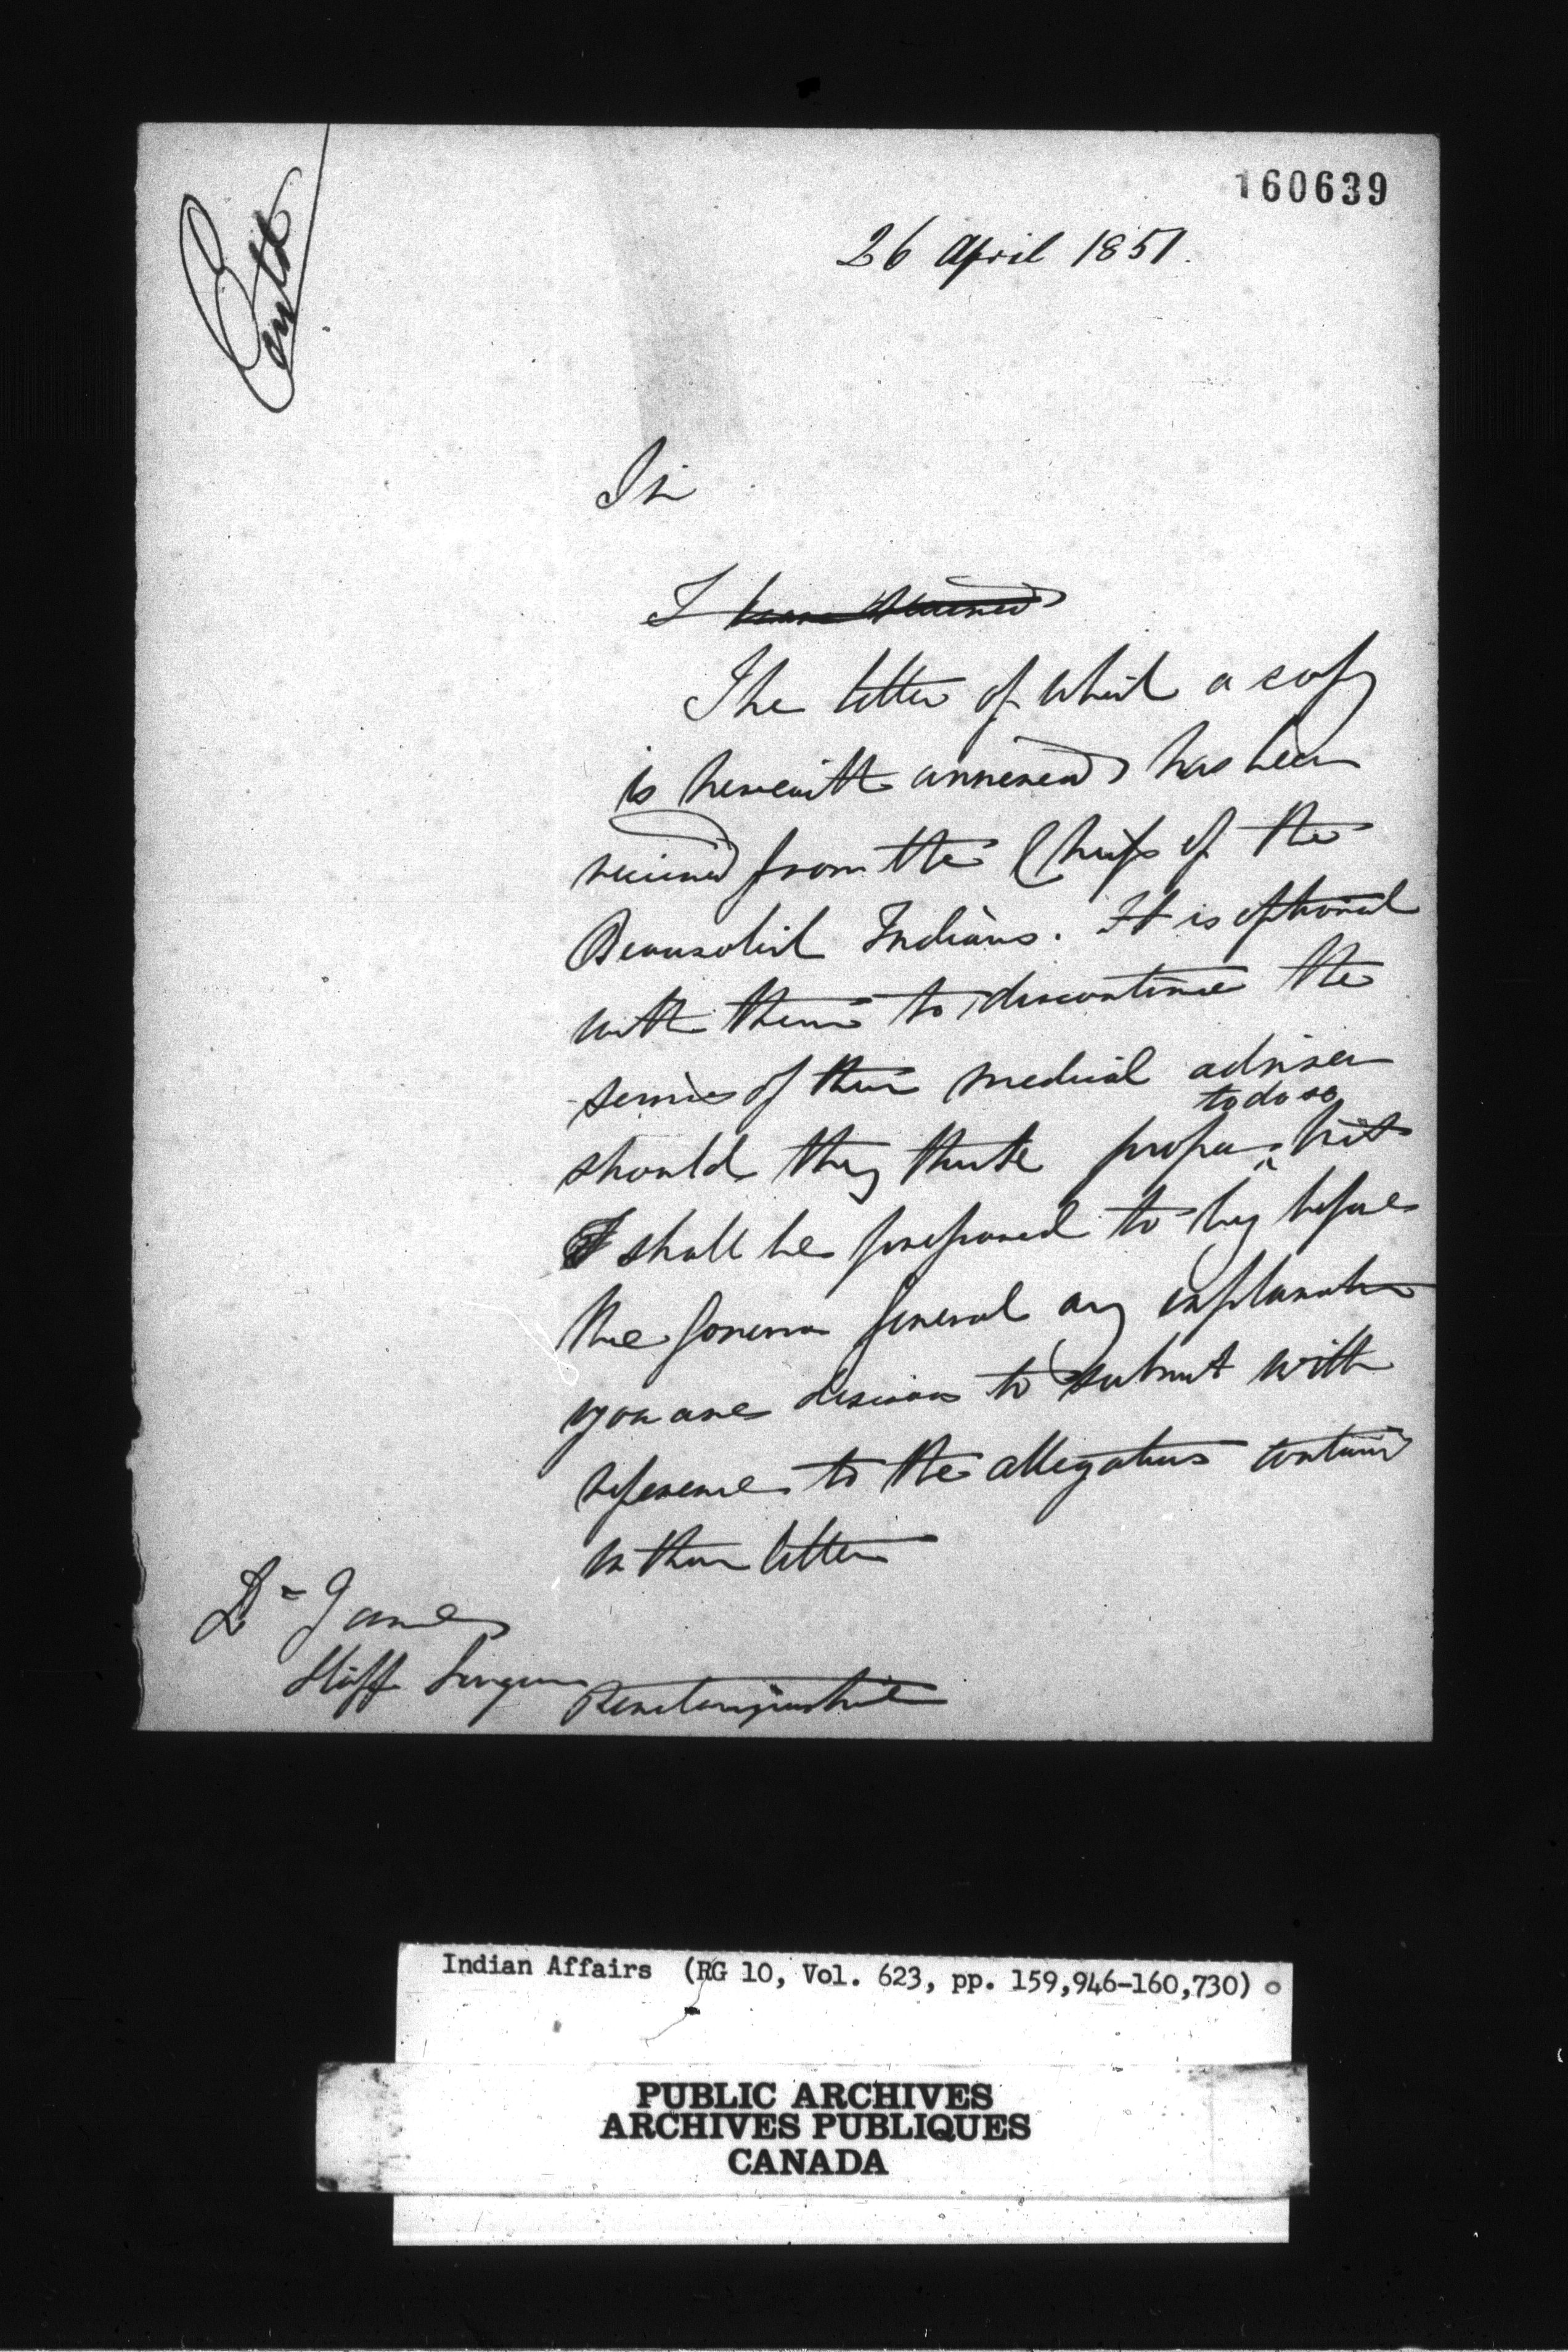 160639
Entd
26 April 1851.
Sir
I have received
The letter of which a copy
is herewith annexed has been
received from the Chiefs of the
Beausoleil Indians. It is optional
with them to discontinue the
services of their medical adviser
should they think proper to do so but
I shall be prepared to lay before
the Governor General any explanation
you are desirous to submit with
reference to the allegations contained
in their letter
Dr James
Staff Surgeon Penetanguishine
Indian Affairs (RG 10, Vol. 623, pp. 159,946-160,730)
PUBLIC ARCHIVES
ARCHIVES PUBLIQUES
CANADA